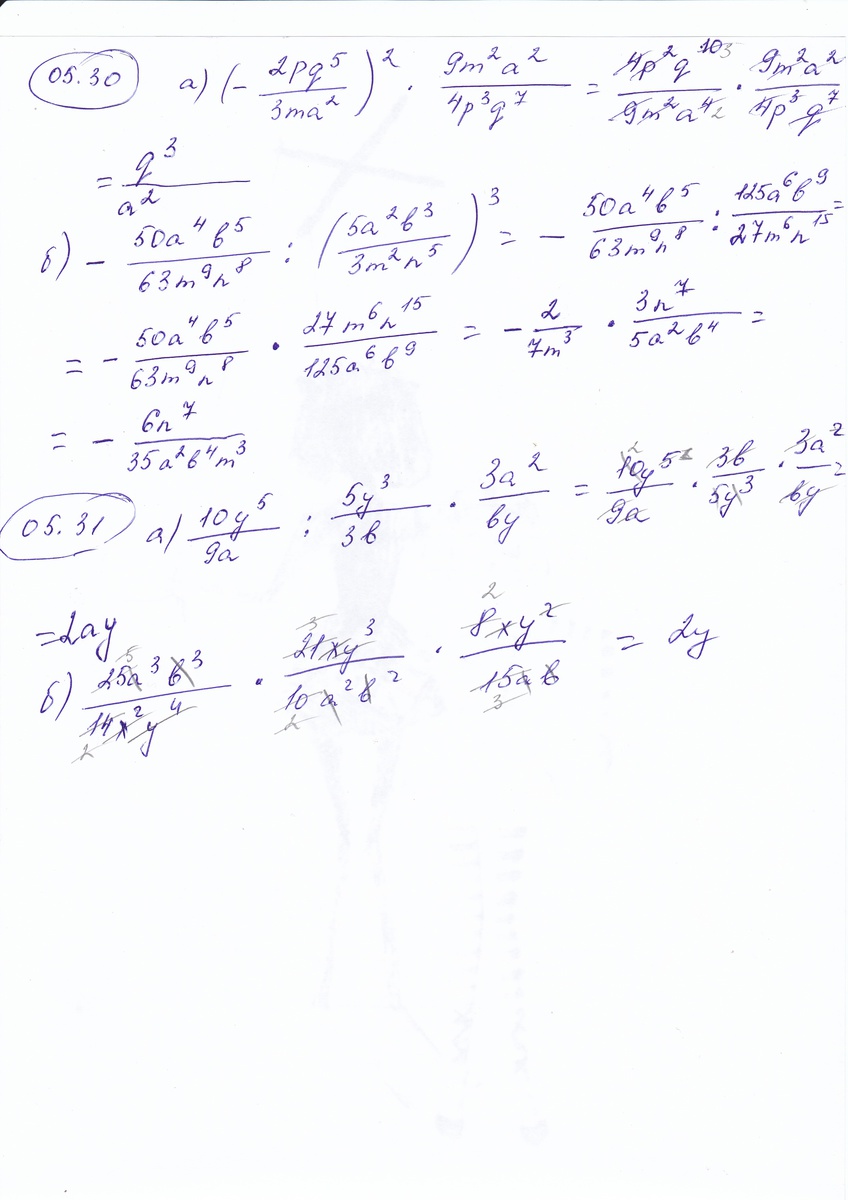 05.30 а) (- 2pq⁵/3ma²)² · 9m²a²/4p³q⁷ = 4p²q¹⁰ 3/9m²a⁴ 2 · 9m²a²/4p³q⁷
= q³/a²
б) - 50a⁴b⁵/63m⁹n⁸ : (5a²b³/3m²n⁵)³ = - 50a⁴b⁵/63m⁹n⁸ : 125a⁶b⁹/27m⁶n¹⁵ =
= - 50a⁴b⁵/63m⁹n⁸ · 27m⁶n¹⁵/125a⁶b⁹ = - 2/7m³ · 3n⁷/5a²b⁴ =
= - 6n⁷/35a²b⁴m³
05.31 а) 10y⁵/9a : 5y³/3b · 3a²/by = 2 10y⁵/9a · 3b/5y³ · 3a²/by =
= 2ay
б) 5 25a³b³/14x²y⁴ 2 · 3 21xy³/10a²b² 2 · 2 8xy²/15ab 3 = 2y